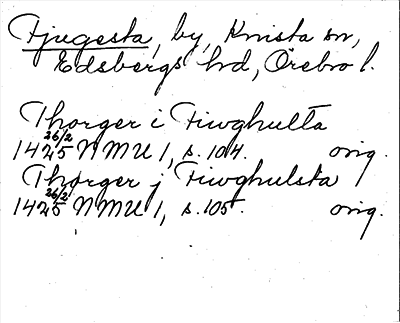 Fjugesta, by, Knista sn,
Edsbergs hd, Örebro l.
Thorger i Fiwghulta
1425 26/2 NMU 1, s. 104. orig.
Thorger j Fiwghulsta
1425 26/2 NMU 1, s. 105. orig.